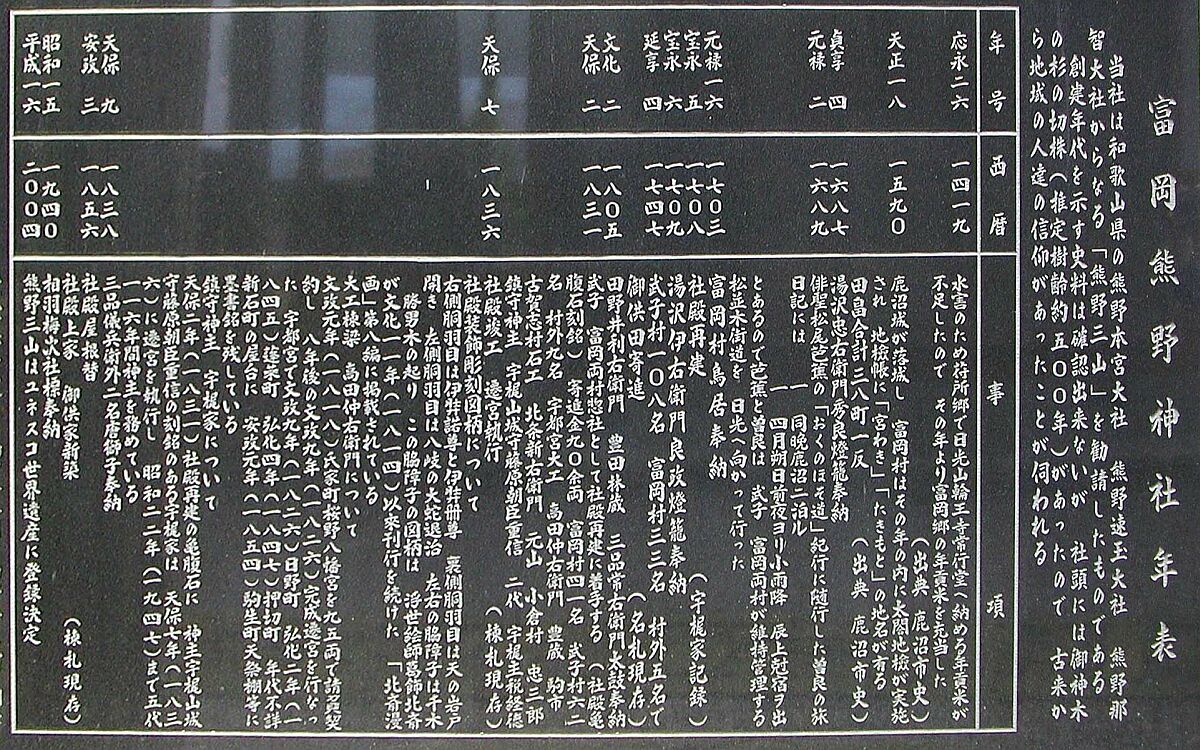 富岡熊野神社年表
当社は和歌山県の熊野本宮大社　熊野速玉大社　熊野那
智大社からなる「熊野三山」を勧請したものである
創建年代を示す史料は確認出来ないが　社頭には御神木
の杉の切株（推定樹齢約五〇〇年）があったので　古来か
ら地域の人達の信仰があったことが伺われる
年号　西暦　事項
応永二六　一四一九　水害のため符所郷で日光山輪王寺常行堂へ納める年貢米が
不足したので　その年より富岡郷の年貢米を充当した
（出典　鹿沼市史）
天正一八　一五九〇　鹿沼城が落城し　富岡村はその年の内に太閤地検が実施
され　地検帳に「宮わき」「たきもと」の地名が有る
田畠合計三八町一反　（出典　鹿沼市史）
貞享　四　一六八七　湯沢忠右衛門秀良燈籠奉納
元禄　二　一六八九　俳聖松尾芭蕉の「おくのほそ道」紀行に随行した曽良の旅
日記には　一　同晩鹿沼ニ泊ル
一　四月朔日前夜ヨリ小雨降　辰上尅宿ヲ出
とあるので芭蕉と曽良は　武子　富岡両村が維持管理する
松並木街道を　日光へ向かって行った
元禄一六　一七〇三　富岡村鳥居奉納
宝永　五　一七〇八　社殿再建　（宇梶家記録）
宝永　六　一七〇九　湯沢伊右衛門良政燈籠奉納
延享　四　一七四七　武子村一〇八名　富岡村三三名　村外五名で
御供田寄進　（名札現存）
文化　二　一八〇五　田野井利右衛門　豊田林蔵　三品常右衛門太鼓奉納
天保　二　一八三一　武子　富岡両村惣社として社殿再建に着手する（社殿亀
腹石刻銘）　寄進金九〇余両　富岡村四一名　武子村六二
名　村外九名　宇都宮大工　高田仲右衛門　豊蔵　駒市
古賀志村石工　北条新右衛門　元山　小倉村　忠三郎
鎮守神主　宇梶山城守藤原朝臣重信　二代　宇梶主税経徳
天保　七　一八三六　社殿竣工　遷宮執行　（棟札現存）
社殿装飾彫刻図柄について
右側胴羽目は伊弉諾尊と伊弉冊尊　裏側胴羽目は天の岩戸
開き　左側胴羽目は八岐の大蛇退治　左右の脇障子は千木
勝男木の起り　この脇障子の図柄は　浮世絵師葛飾北斎
が文化一一年（一八一四）以来刊行を続けた「北斎漫
画」第八編に掲載されている
大工棟梁　高田仲右衛門について
文政元年（一八一八）氏家町桜野八幡宮を九五両で請負契
約し　八年後の文政九年（一八二六）完成遷宮を行なっ
た　宇都宮で文政九年（一八二六）日野町　弘化二年（一
八四五）蓬莱町　弘化四年（一八四七）押切町　年代不詳
新石町の屋台に　安政元年（一八五四）駒生町天祭棚等に
墨書銘を残している
鎮守神主　宇梶家について
天保二年（一八三一）社殿再建の亀腹石に　神主宇梶山城
守藤原朝臣重信の刻銘のある宇梶家は　天保七年（一八三
六）に遷宮を執行し　昭和二二年（一九四七）まで五代
一一六年間神主を務めている
天保　九　一八三八　三品儀兵衛外二名唐獅子奉納
安政　三　一八五六　社殿屋根替
社殿上家　御供家新築　（棟札現存）
昭和一五　一九四〇　相羽梅次社標奉納
平成一六　二〇〇四　熊野三山はユネスコ世界遺産に登録決定